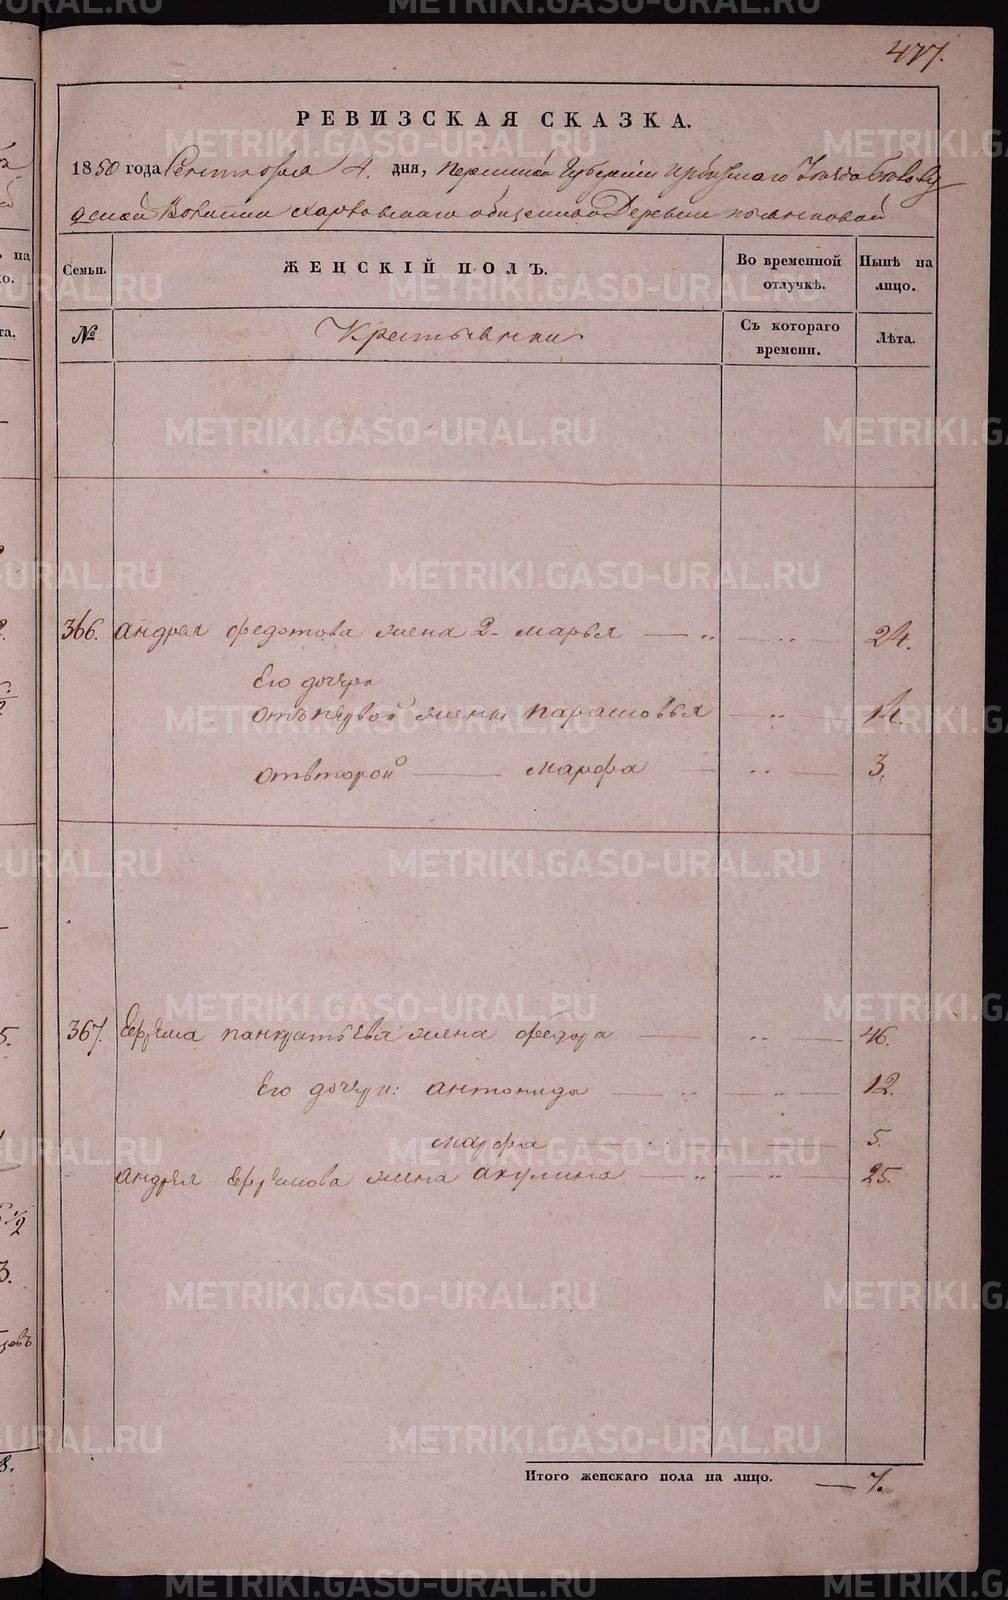 477.
РЕВИЗСКАЯ СКАЗКА.
1850 года Сентября 4. дня, Пермской Губернии Ирбитского Уезда Белослуд
ской Волости Харловского общества Деревни
Семьи. ЖЕНСКІЙ ПОЛЪ. Во временной отлучкѣ. Нынѣ на лицо.
№ Крестьянки Съ котораго времени. Лѣта.
366. Андрея Федотова жена 2- Марья 24.
Его дочери
отъ первой жены Парасковья 14.
от второй Марфа 3.
367. Ефрема Панкратьева жена Федора 46.
Его дочери: Антонида 12.
Марфа 5.
Андрея Ефремова жена Акулина 25.
Итого женскаго пола на лицо. 7.
METRIKI.GASO-URAL.RU